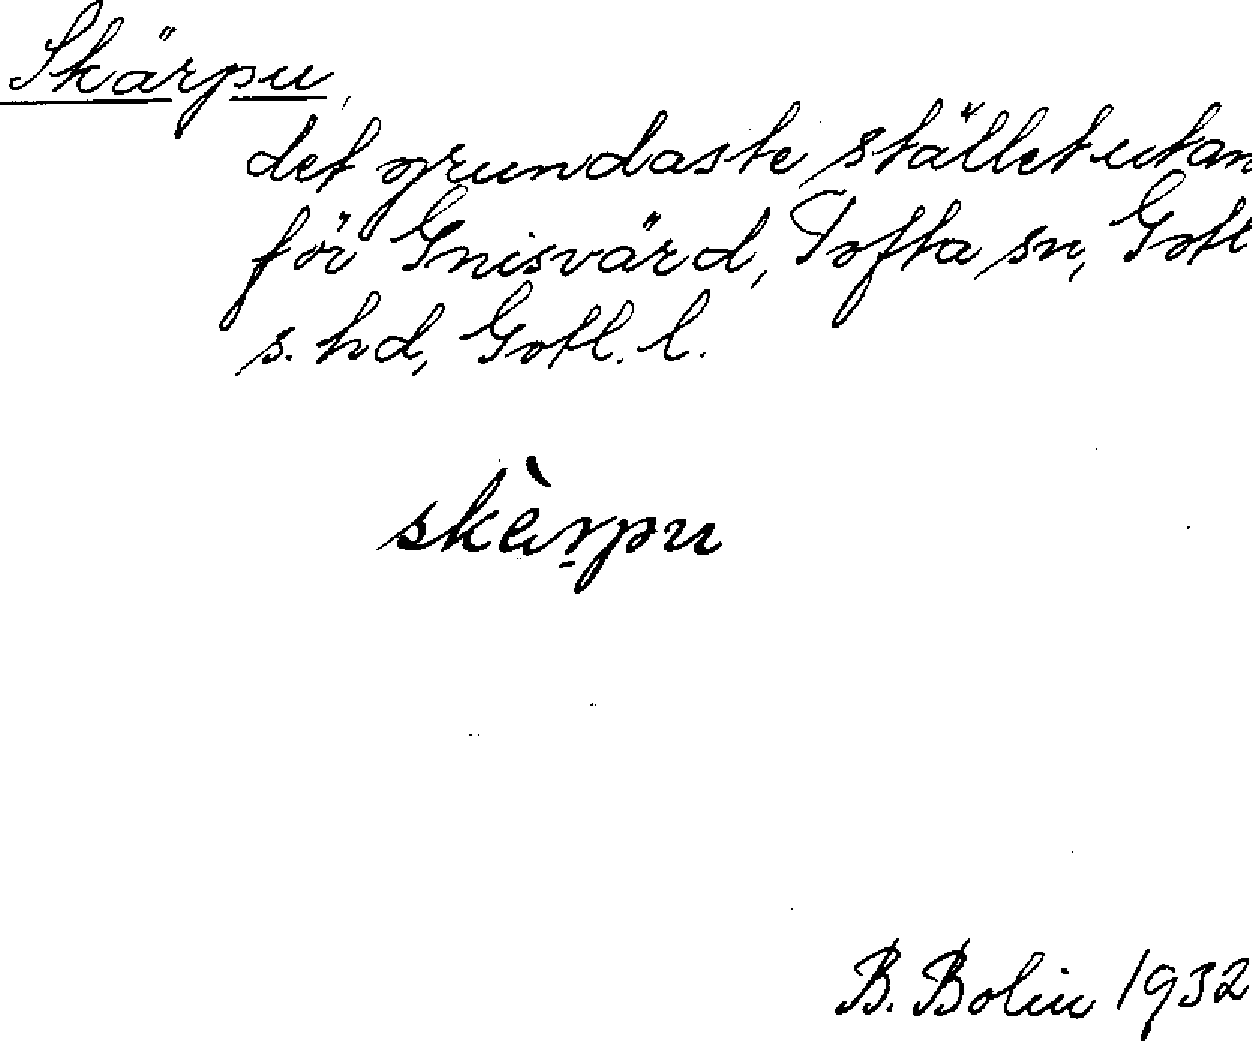 Skärpu,
det grundaste stället utan
för Gnisvärd, Tofta sn, Gotl
s. hd, Gotl. l.
skèrpu
B. Bolin 1932